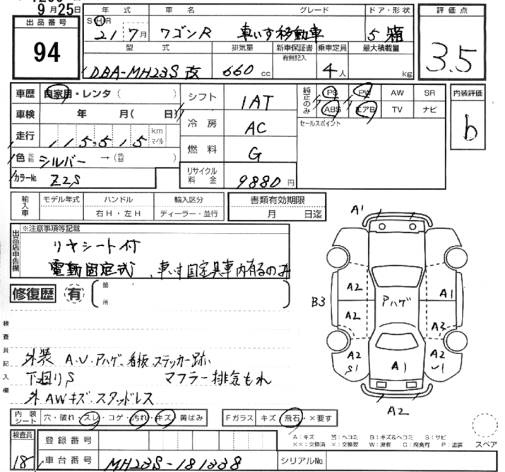 9月25日
出品番号
94
年式 車名 グレード ドア・形状
S H R 21/7月 ワゴンR 車いす移動車 5 箱
型式 排気量 新車保証書 有無記入 乗車定員 最大積載量
DBA-MH23S 改 660 cc 4人 kg
評価点
3.5
車歴 自家用・レンタ ( )
シフト 1AT
純正のみ PS PW AW SR
ABS エアB TV ナビ
内装評価
b
車検 年 月( 日)
冷房 AC
セールスポイント
走行 115,515 km マイル
燃料 G
色 シルバー → (色替)
カラーNo. Z2S
リサイクル料金 9880円
輸入車 モデル年式 ハンドル 輸入区分 書類有効期限
右H・左H ディーラー・並行 月 日迄
※注意事項等記載
リヤシート付
電動固定式、車いす固定具車内有るのみ
修復歴 有 箇所
検査員記入欄
外装 A.U.Pハゲ、看板ステッカー跡
下廻りS マフラー排気もれ
外AWキズ スタッドレス
A1
B3
A2 A2 Pハゲ A1
A2 A2
A2 S1 A1 A2 U1
A2
内装シート 穴・破れ・スレ・コゲ・汚れ・キズ・黄ばみ
Fガラス キズ・飛石・×要す
スペア
検査員 18
登録番号
車台番号 MH23S-181338
シリアルNo.